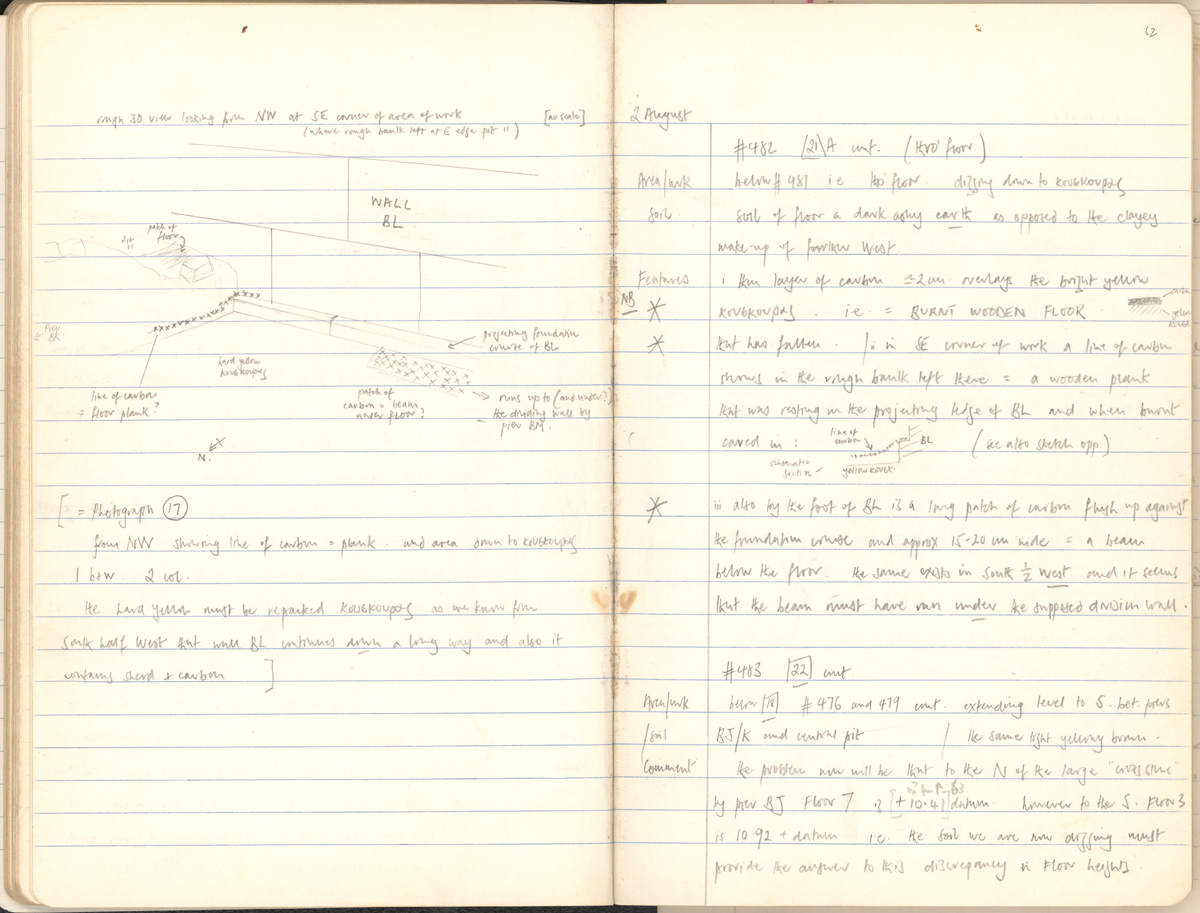 rough 3D view looking from NW at SE corner of area of work [no scale]
(where rough baulk left at E edge pit 11)
WALL
BL
pit
11
patch of
floor
Pier
BK
projecting foundation
course of BL
hard yellow
κουσκουρας
line of carbon
= floor plank?
patch of
carbon = beam
under floor?
runs up to (and under?)
the dividing wall by
pier BM.
N.
[ = Photograph 17
from NW showing line of carbon = plank. and area down to κουσκουρας
1 b+w. 2 col.
the hard yellow must be repacked κουσκουρας as we know from
South half West that wall BL continues down a long way and also it
contains sherd + carbon ]
62
2 August
#482 21\A cont. ( floor)
Area/wk below #481 i.e. floor. digging down to κουσκουρας
Soil. soil of floor a dark ashy earth as opposed to the clayey
make-up of further West.
Features i. thin layer of carbon ±2cm overlays the bright yellow
NB * κουσκουρας. i.e. = BURNT WOODEN FLOOR
carbon
yellow
* that has fallen. / ii in SE corner of work a line of carbon
shows in the rough baulk left there = a wooden plank
that was resting in the projecting ledge of BL and when burnt
caved in: (see also sketch opp)
line of
carbon
BL
schematic
section
yellow κουσκ.
* iii also by the foot of BL is a long patch of carbon flush up against
the foundation course and approx 15-20 cm wide = a beam
below the floor. the same exists in South ½ West and it seems
that the beam must have run under the supposed division wall.
#483 22 cont
Area/wk below 18 #476 and 479 cont. extending level to S. bet. piers
/soil BJ/K and central pit / the same light yellowy brown.
Comment the problem now will be that to the N of the large "cross
by pier BJ Floor 7 is [+10.41] datum. however to the S. Floor 3
is 10.92 + datum i.e. the soil we are now digging must
provide the answer to this discrepancy in Floor heights.